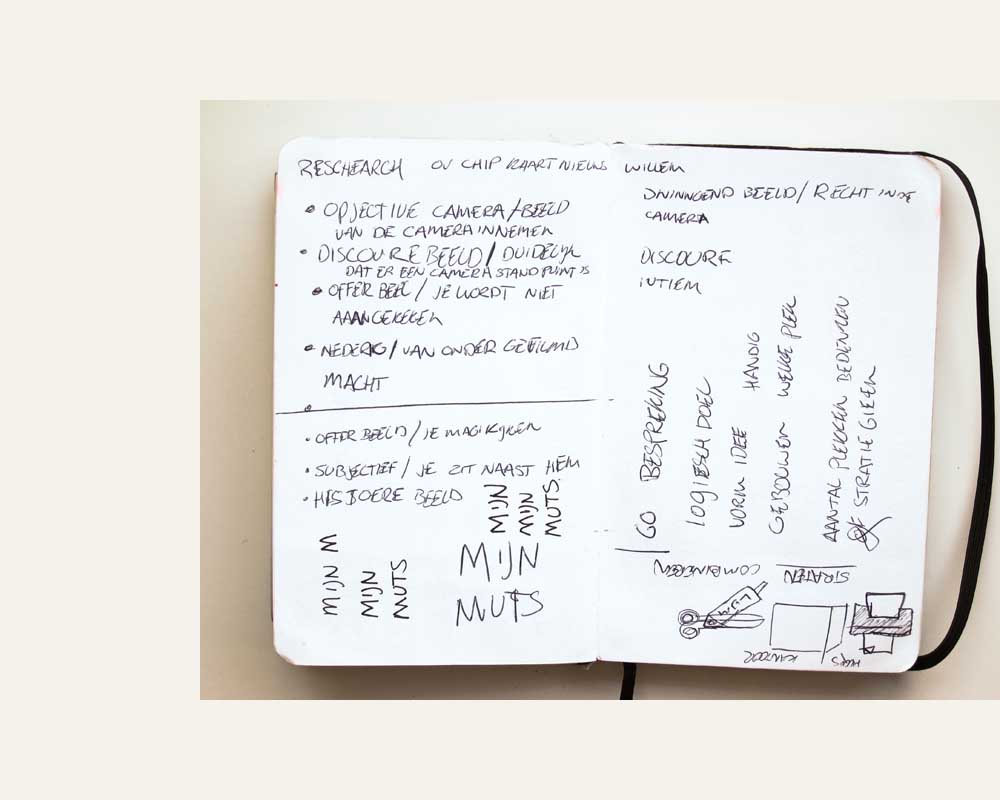 RESCHEARCH OV CHIP KAART NIEUWS WILLEM
OPJECTIVE CAMERA/BEELD
VAN DE CAMERA INNEMEN
DISCOURE BEELD/ DUIDELIJK
DAT ER EEN CAMERA STANDPUNT IS
OFFER BEEL / JE WORDT NIET
AAANGEKEKEN
NEDERIG/ VAN ONDER GEFILMD
MACHT
OFFER BEELD/JE MAG KIJKEN
SUBJECTIEF/ JE ZIT NAAST HEM
BEELD
MIJN
MIJN
MUTS
MIJN M
MIJN
MUTS
MIJN
MUTS
BEELD/ RECHT IN DE
CAMERA
DISCOURE
INTIEM
GO BESPREKING
LOGIESCH DOEL
VORM IDEE HANDIG
GEBOUWEN WELKE PLEK
AANTAL PLEKKEN BEDENKEN
STRATIEGIEEN
COMBINEREN
STRATEN
LIJM
KANTOOR